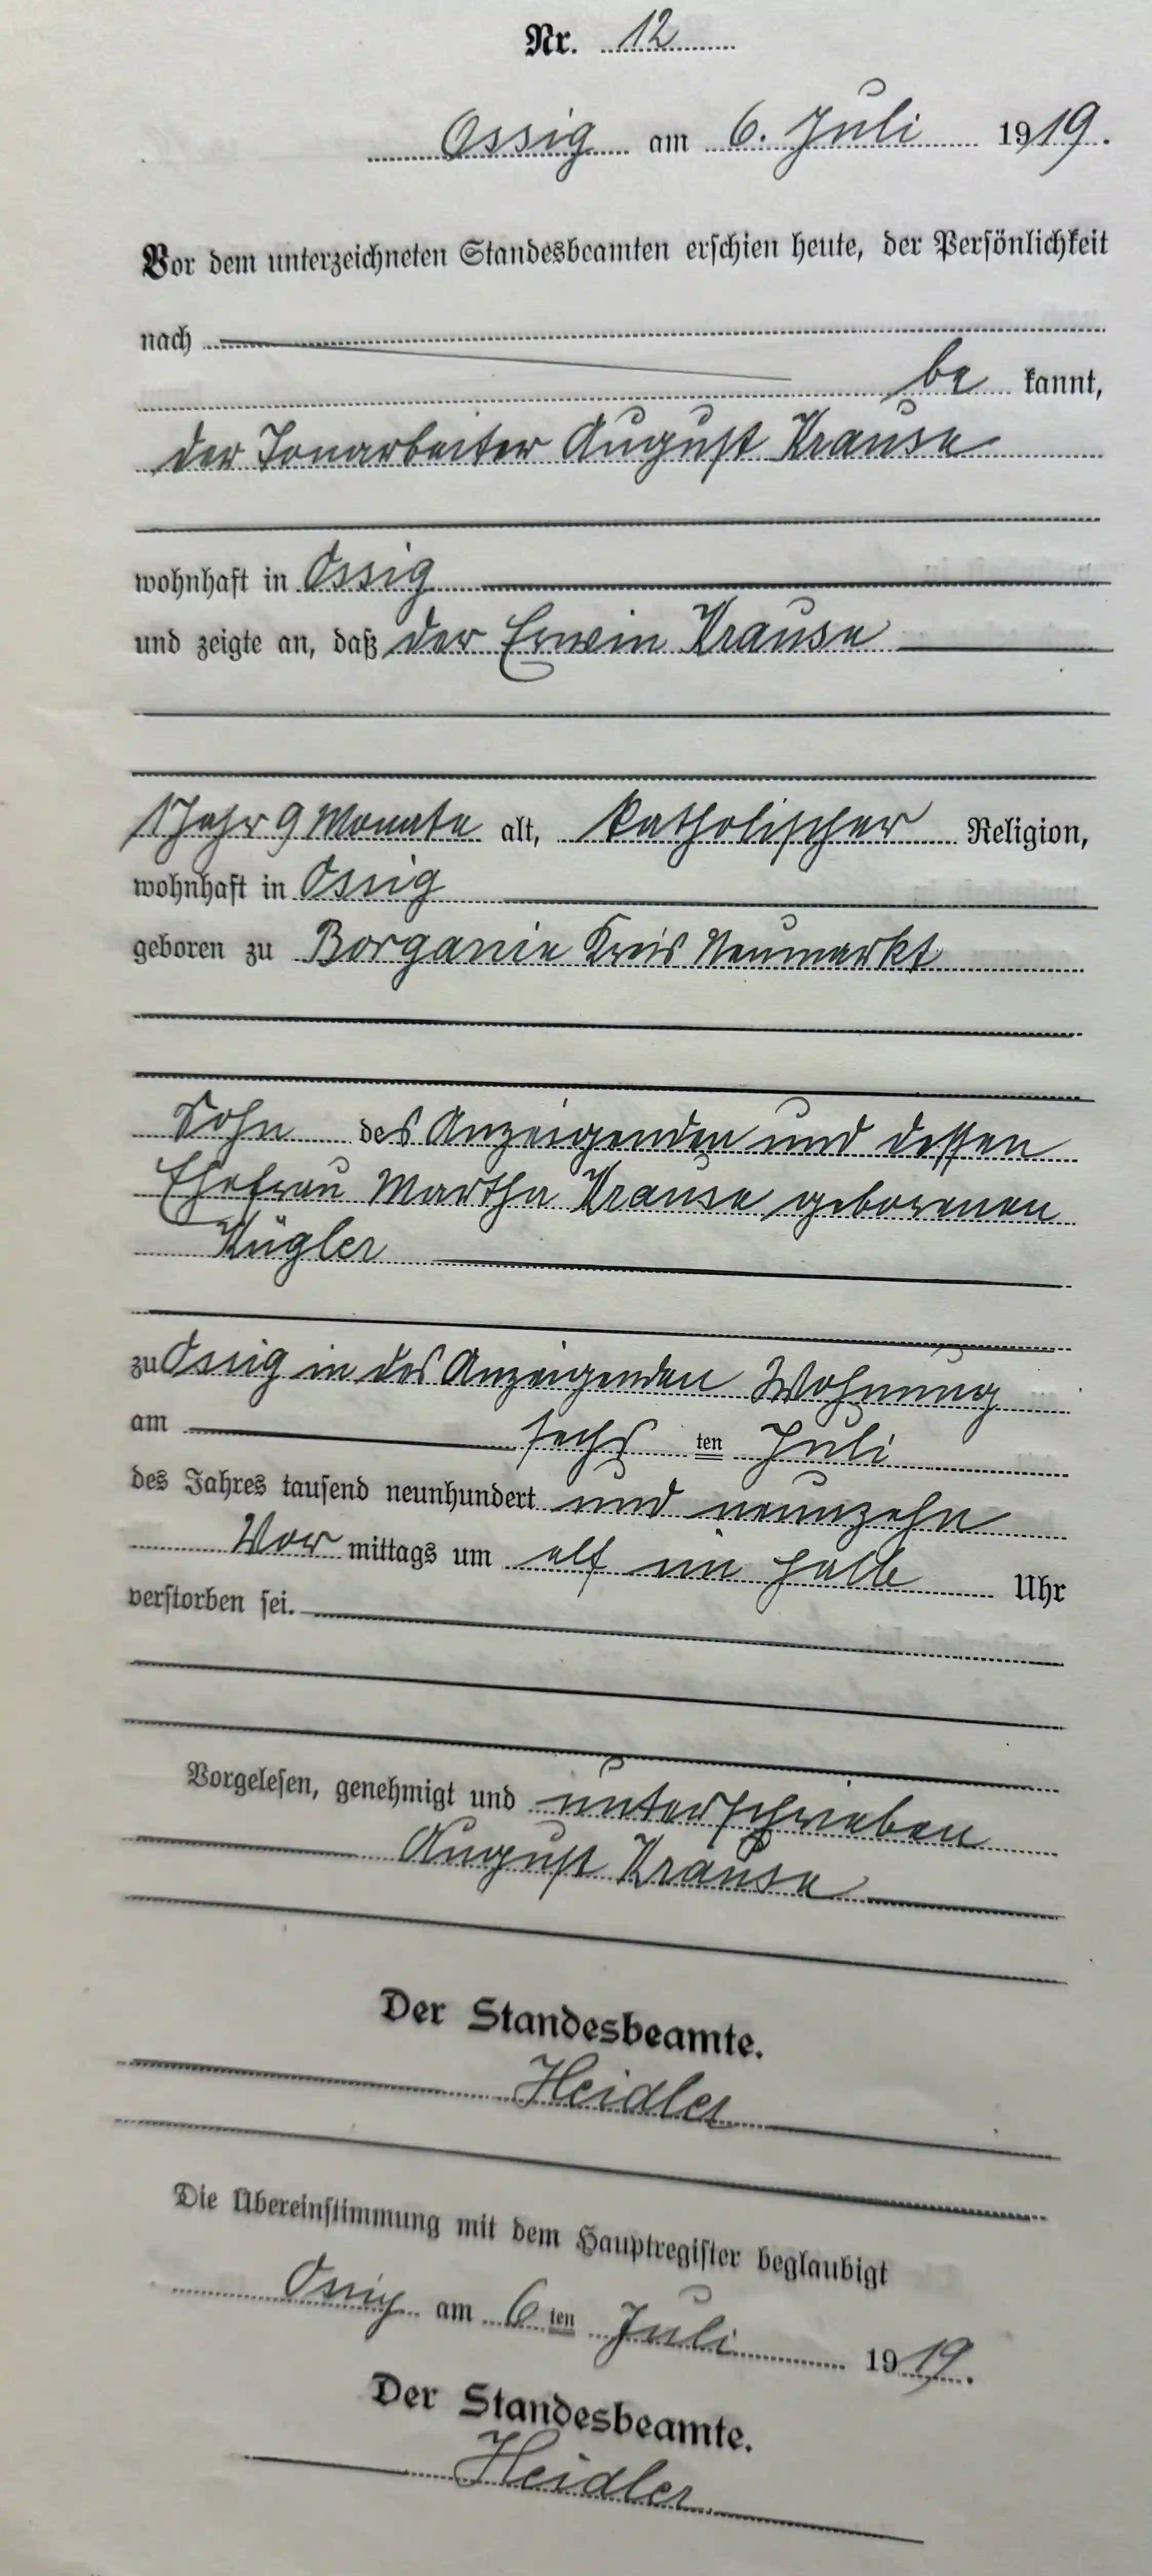 Nr. 12
Ossig am 6. Juli 1919.
Vor dem unterzeichneten Standesbeamten erschien heute, der Persönlichkeit
nach
be kannt,
der Tonarbeiter August Krause
wohnhaft in Ossig
und zeigte an, daß der Erwin Krause
1 Jahr 9 Monate alt, katholischer Religion,
wohnhaft in Ossig
geboren zu Borganie Kreis Neumarkt
Sohn des Anzeigenden und dessen
Ehefrau Martha Krause geborenen
Kügler
zu Ossig in des Anzeigenden Wohnung
am sechs ten Juli
des Jahres tausend neunhundert und neunzehn
Vor mittags um elf ein halb Uhr
verstorben sei.
Vorgelesen, genehmigt und unterschrieben
August Krause
Der Standesbeamte.
Heidler
Die Übereinstimmung mit dem Hauptregister beglaubigt
Ossig am 6 ten Juli 1919.
Der Standesbeamte.
Heidler